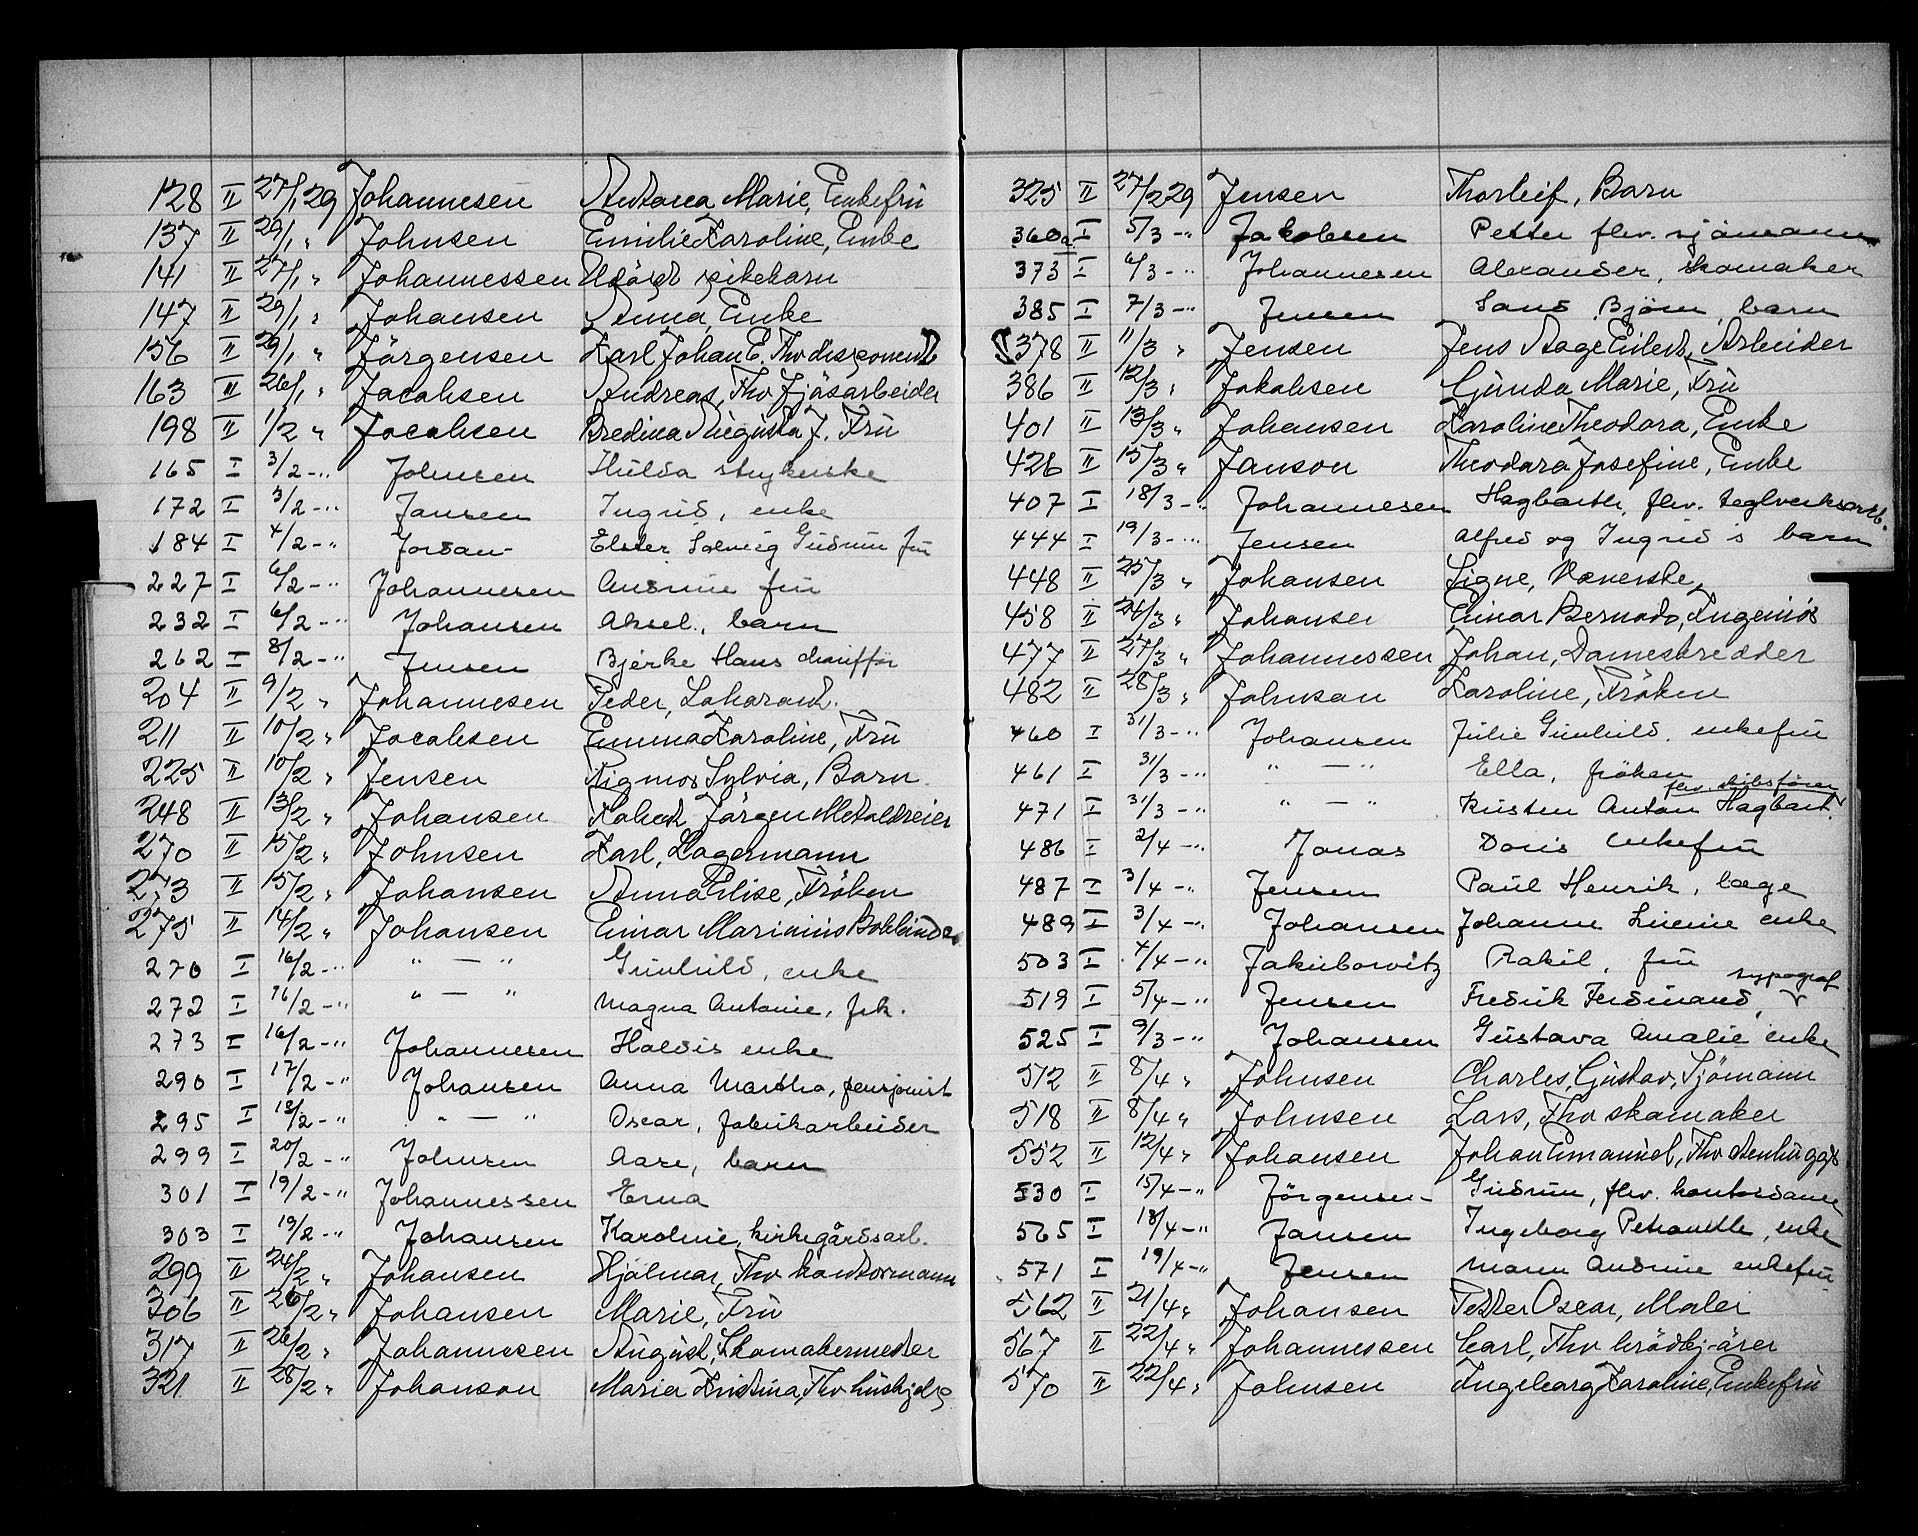 128 II 27/1 29 Johannesen Antona Marie, Enkefru
137 II 29/1 " Johnsen Emilie Karoline, Enke
141 II 27/1 " Johannessen Udöpt pikebarn
147 II 29/1 " Johansen Anna, Enke
156 II 29/1 " Jörgensen Karl Johan E. Fhv disponent
163 II 26/1 " Jacobsen Andreas, Fhv Fjøsarbeider
198 II 1/2 " Jacobsen Bredina Augusta J. Fru
165 I 3/2 -" Johnsen Hulda strykerske
172 I 3/2 -" Jansen Ingrid, enke
184 I 4/2 -" Jordan Ester Solveig Gudrun fru
227 I 6/2 -" Johannesen Andrine fru
232 I 6/2 -" Johansen Aksel, barn
262 I 8/2 -" Jensen Bjerke Hans chauffør
204 II 9/2 " Johannesen Peder,
211 II 10/2 " Jacobsen Emma Karoline, Fru
225 II 10/2 " Jensen Rigmor Sylvia, Barn
248 II 13/2 " Johansen Jörgen Metaldreier
270 II 15/2 " Johnsen Karl, Lagermann
273 II 15/2 " Johansen Anna Elise, Fröken
275 II 14/2 " Johansen Einar Marinius Bokbinder
270 I 16/2 -" " — " Gunhild, enke
272 I 16/2 -" " — " Magna Antonie, frk.
273 I 16/2 -" Johannesen Haldis enke
290 I 17/2 -" Johansen Anna Martha, pensjonist
295 I 18/2 -" " — " Oscar, fabrikarbeider
299 I 20/2 -" Johnsen Aase, barn
301 I 19/2 -" Johannessen Erna
303 I 19/2 -" Johansen Karoline, kirkegårdsarb.
299 II 24/2 " Johansen Hjalmar, Fhv kontormann
306 II 26/2 " Johansen Marie, Fru
317 II 26/2 " Johannesen August, Skomakermester
321 II 28/2 " Johanson Maria Kristina, Fhv hushjelp
325 II 27/2 29 Jensen Thorleif, Barn
360a I 5/3 -" Jakobsen Petter fhv. sjömann
373 I 6/3 -" Johannesen Alexander, skomaker
385 I 7/3 -" Jensen Sand Bjørn, barn
378 II 11/3 " Jensen Jens Aage Eilert, Arbeider
386 II 12/3 " Jakobsen Gunda Marie, Fru
401 II 13/3 " Johansen Karoline Theodora, Enke
426 II 15/3 " Janson Theodora Josefine, Enke
407 I 18/3 -" Johannesen Hagbarth, fhv. teglverksarb.
444 I 19/3 -" Jensen Alfred og Ingrid s barn
448 II 25/3 " Johansen Signe, Væverske,
458 II 24/3 " Johansen Einar Bernado, Ingeniör
477 II 27/3 " Johannessen Johan, Dameskredder
482 II 28/3 " Johnson Karoline, Fröken
460 I 31/3 -" Johansen Julie Gunhild, enkefru
461 I 31/3 -" " — " Ella, fröken
471 I 31/3 -" " — " Kristen Anton Hagbart. fhv. skibsfører
486 I 2/4 -" Jonas Doris enkefru
487 I 3/4 -" Jensen Paul Henrik, læge
489 I 3/4 -" Johansen Johanne Lucine enke
503 I 4/4 -" Jakubowitz Rakil, fru
519 I 5/4 -" Jensen Fredrik Ferdinand, typograf
525 I 9/3 -" Johansen Gustava Amalie enke
512 II 8/4 " Johnsen Charles, Gustav, Sjömann
518 II 8/4 " Johnsen Lars, Fhv skomaker
552 II 12/4 " Johansen Johan Emanuel, Fhv stenhugger
530 I 15/4 -" Jörgensen Gudrun, fhv. kontordame
565 I 18/4 -" Jansen Ingeborg Petronelle, enke
571 I 19/4 -" Jensen Maren Andrine enkefru
562 II 21/4 " Johansen Petter Oscar, Maler
567 II 22/4 " Johannessen Carl, Fhv brödkjører
570 II 22/4 " Johnsen Ingeborg Karoline, Enkefru